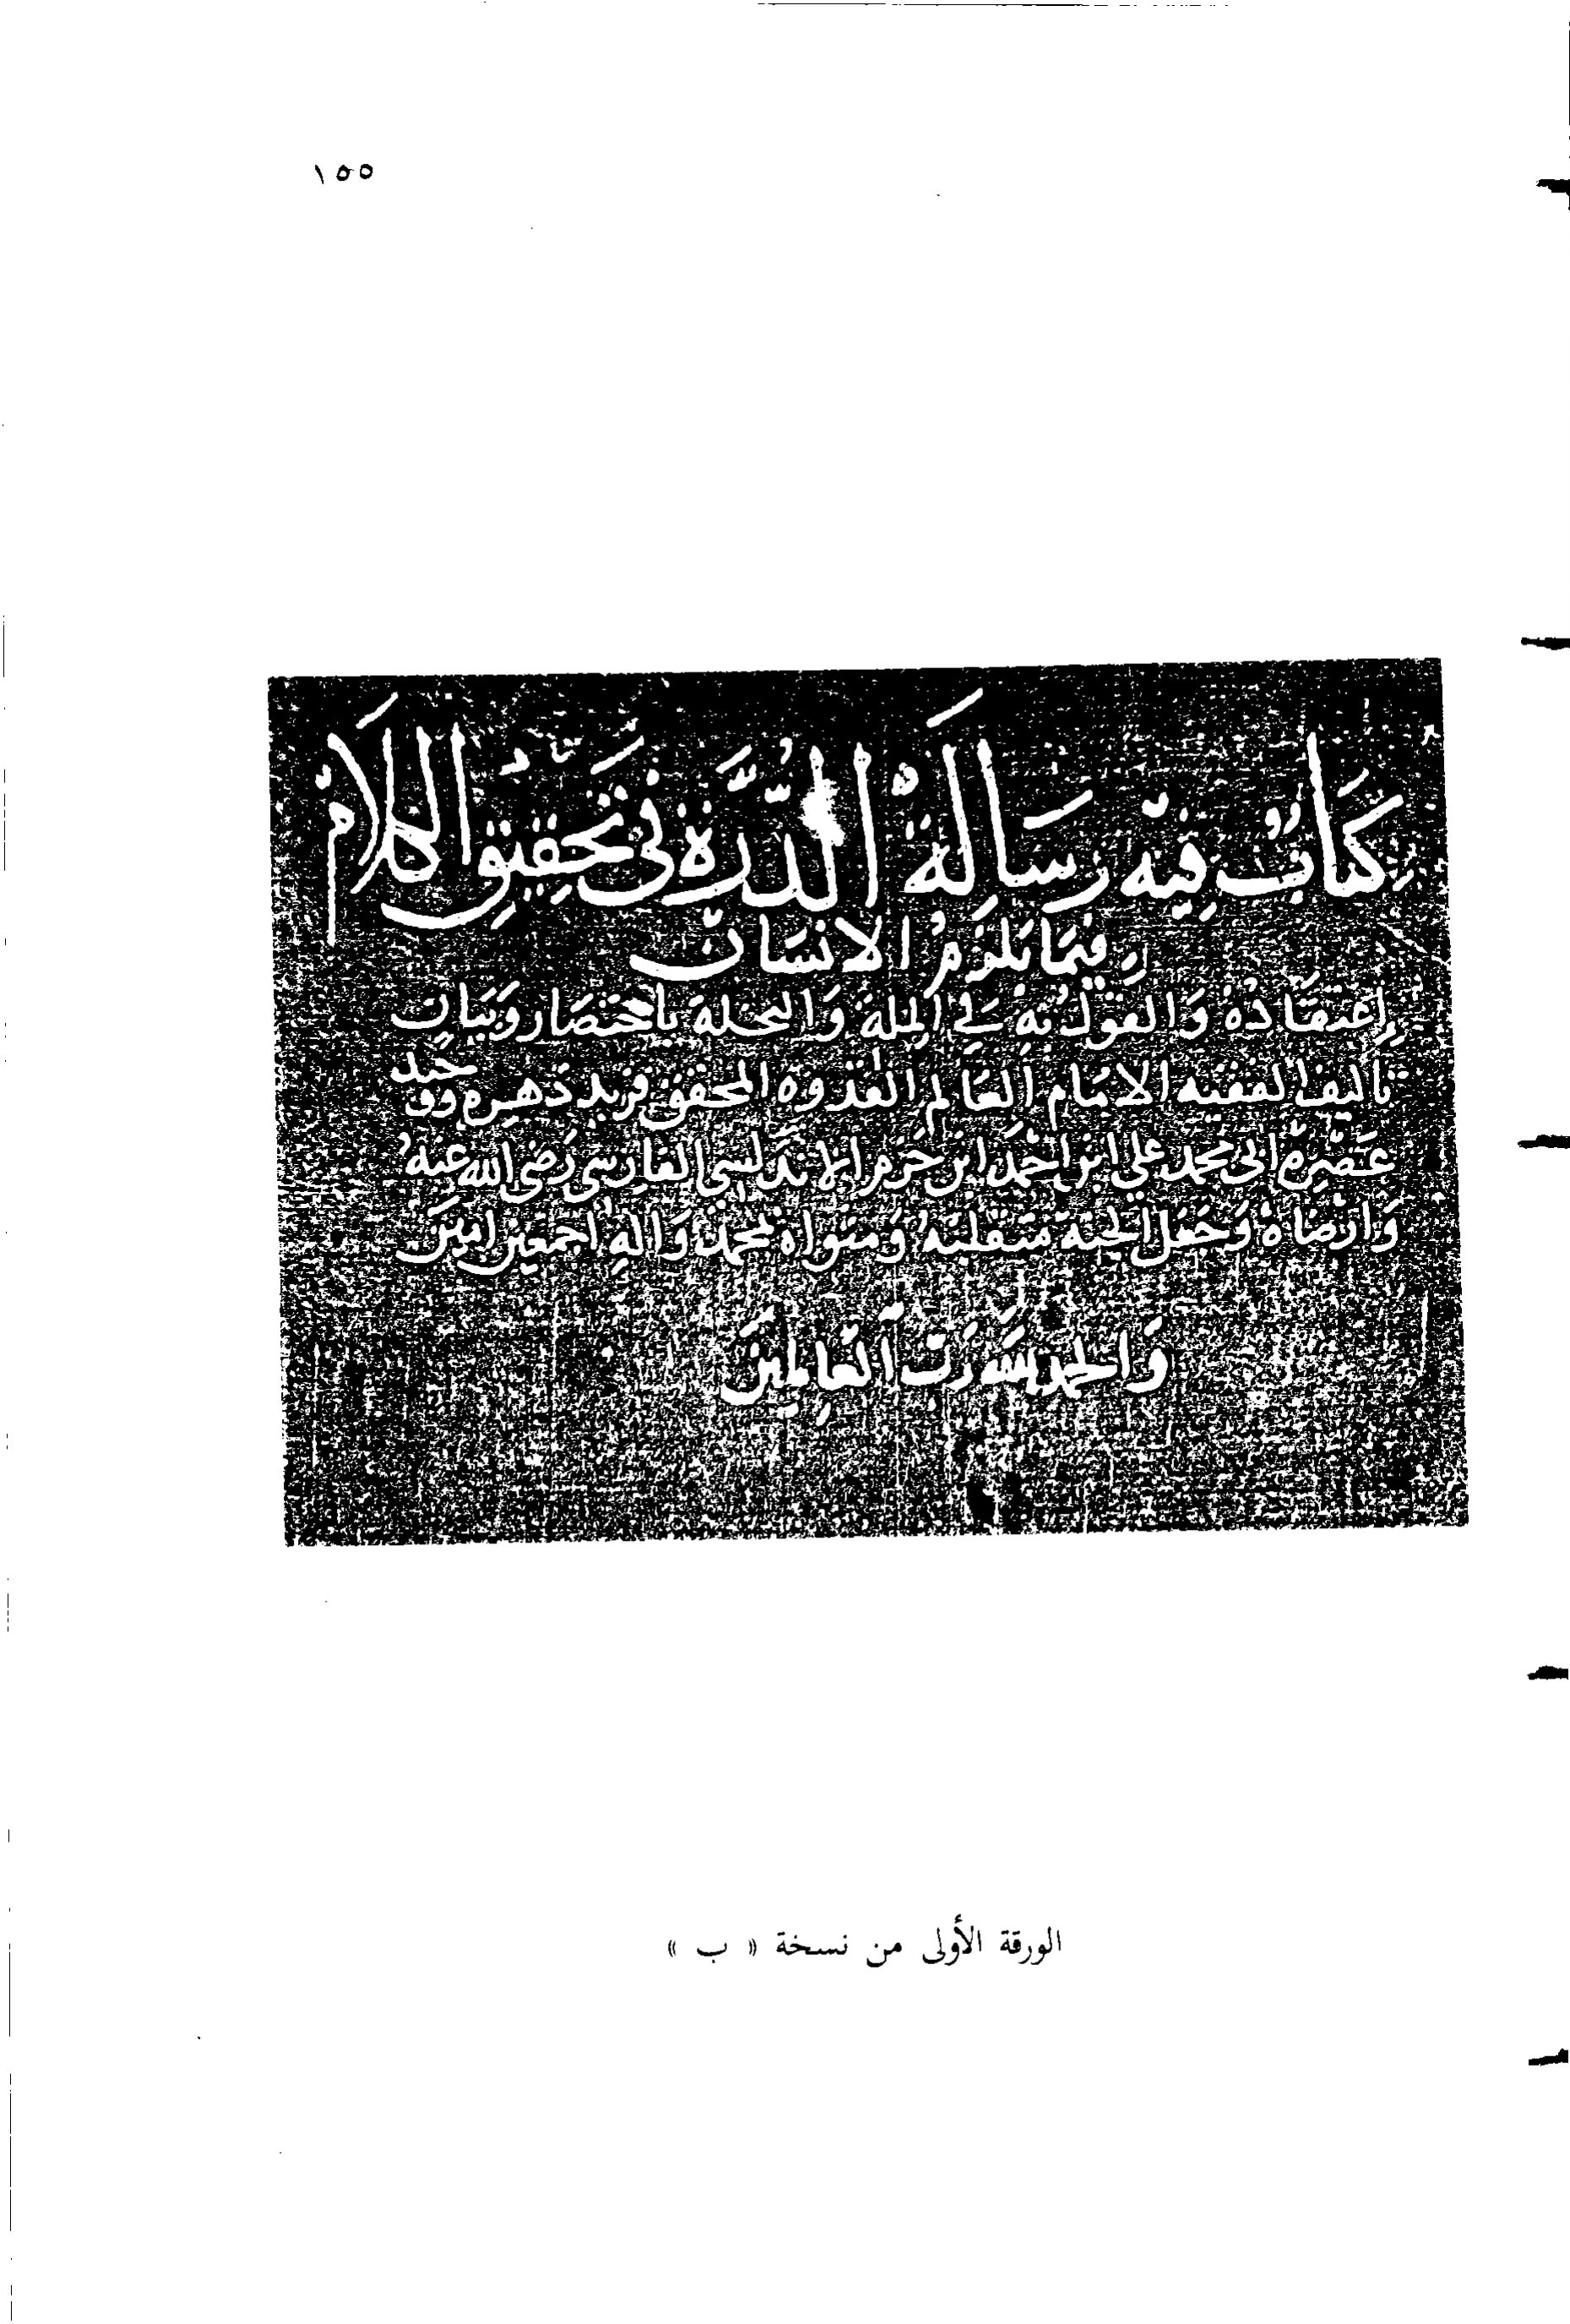 ١٥٥
كِتَابٌ فِيْهِ رِسَالَة الدُّرَّة فى تحقِيقِ الكَلَامْ
فِيمَا يَلزَمُ الانسَان
إعتقَادُهُ وَالقولُ بهِ في المِلة وَالنحلة باختصَار وَبَيَان
تأليف الفقيه الامَام العَالِم القدوه المحقق فريد دهره ووَحيد
عَصْرِهْ ابى محمد علي ابن احْمَد ابن حَزم الاندلسي الفارِسي رَضى الله عنهُ
وَارْضَاهُ وَجَعَل الجنة متقلبَهُ وَمثواه بمحمدٍ وَالهِ اجمعِين امِين
وَالحمد لله رَبّ العَالمِينَ
الورقة الأولى من نسخة « ب »